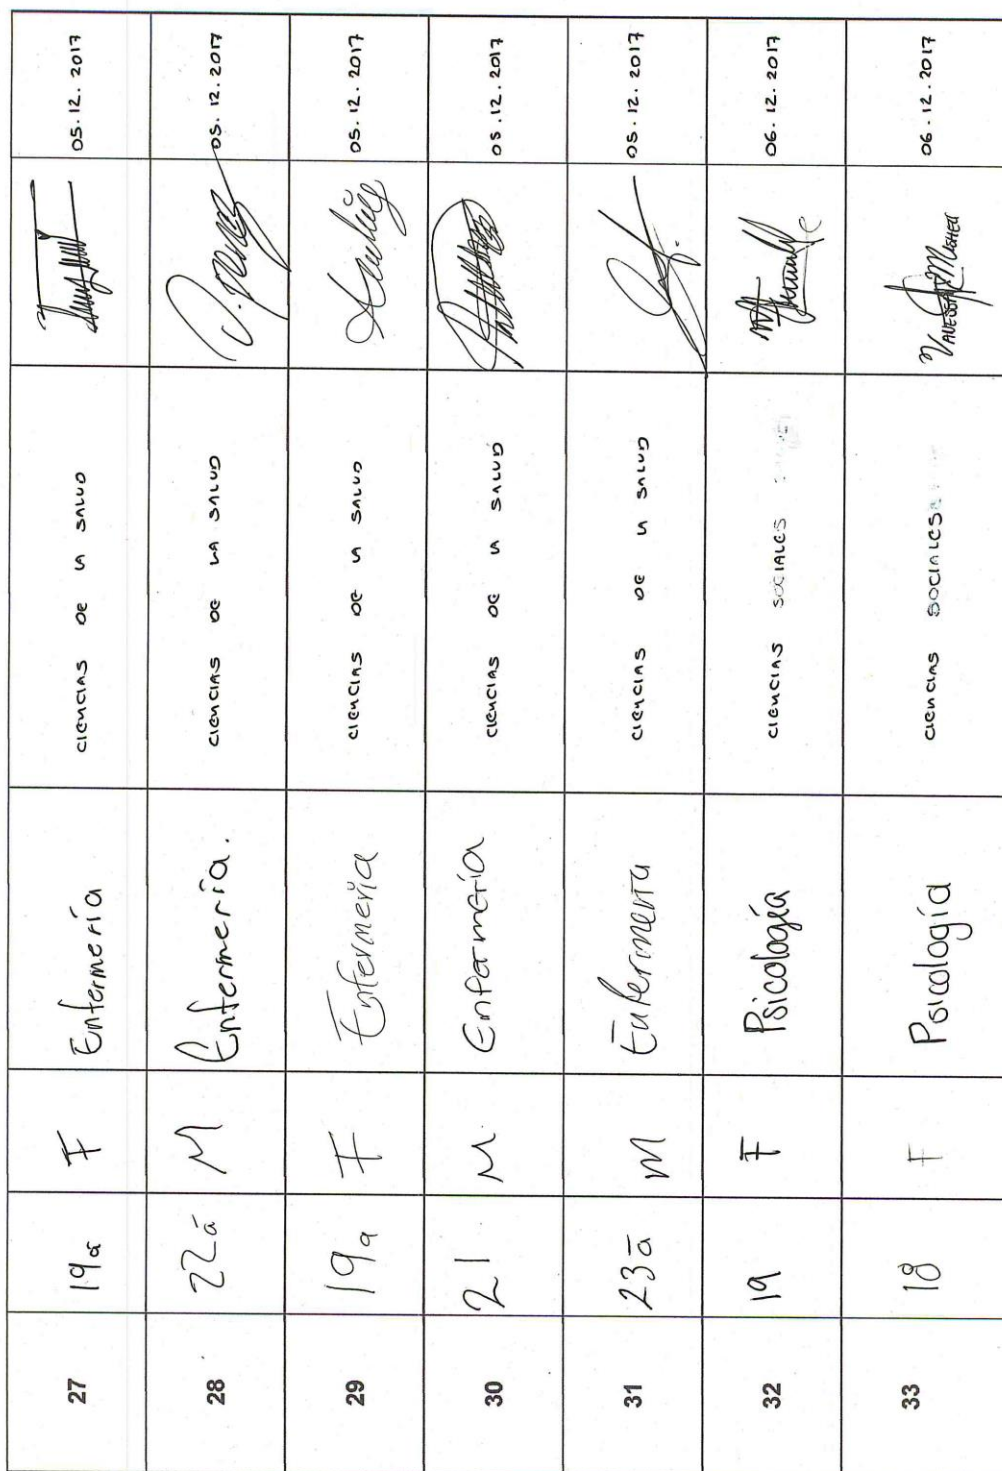 27 19a F Enfermería ciencias de la salud 05.12.2017
28 22a M Enfermería. ciencias de la salud 05.12.2017
29 19a F Enfermería ciencias de la salud 05.12.2017
30 21 M Enfermería ciencias de la salud 05.12.2017
31 23a M Enfermería ciencias de la salud 05.12.2017
32 19 F Psicología ciencias sociales 06.12.2017
33 18 F Psicología ciencias sociales 06.12.2017